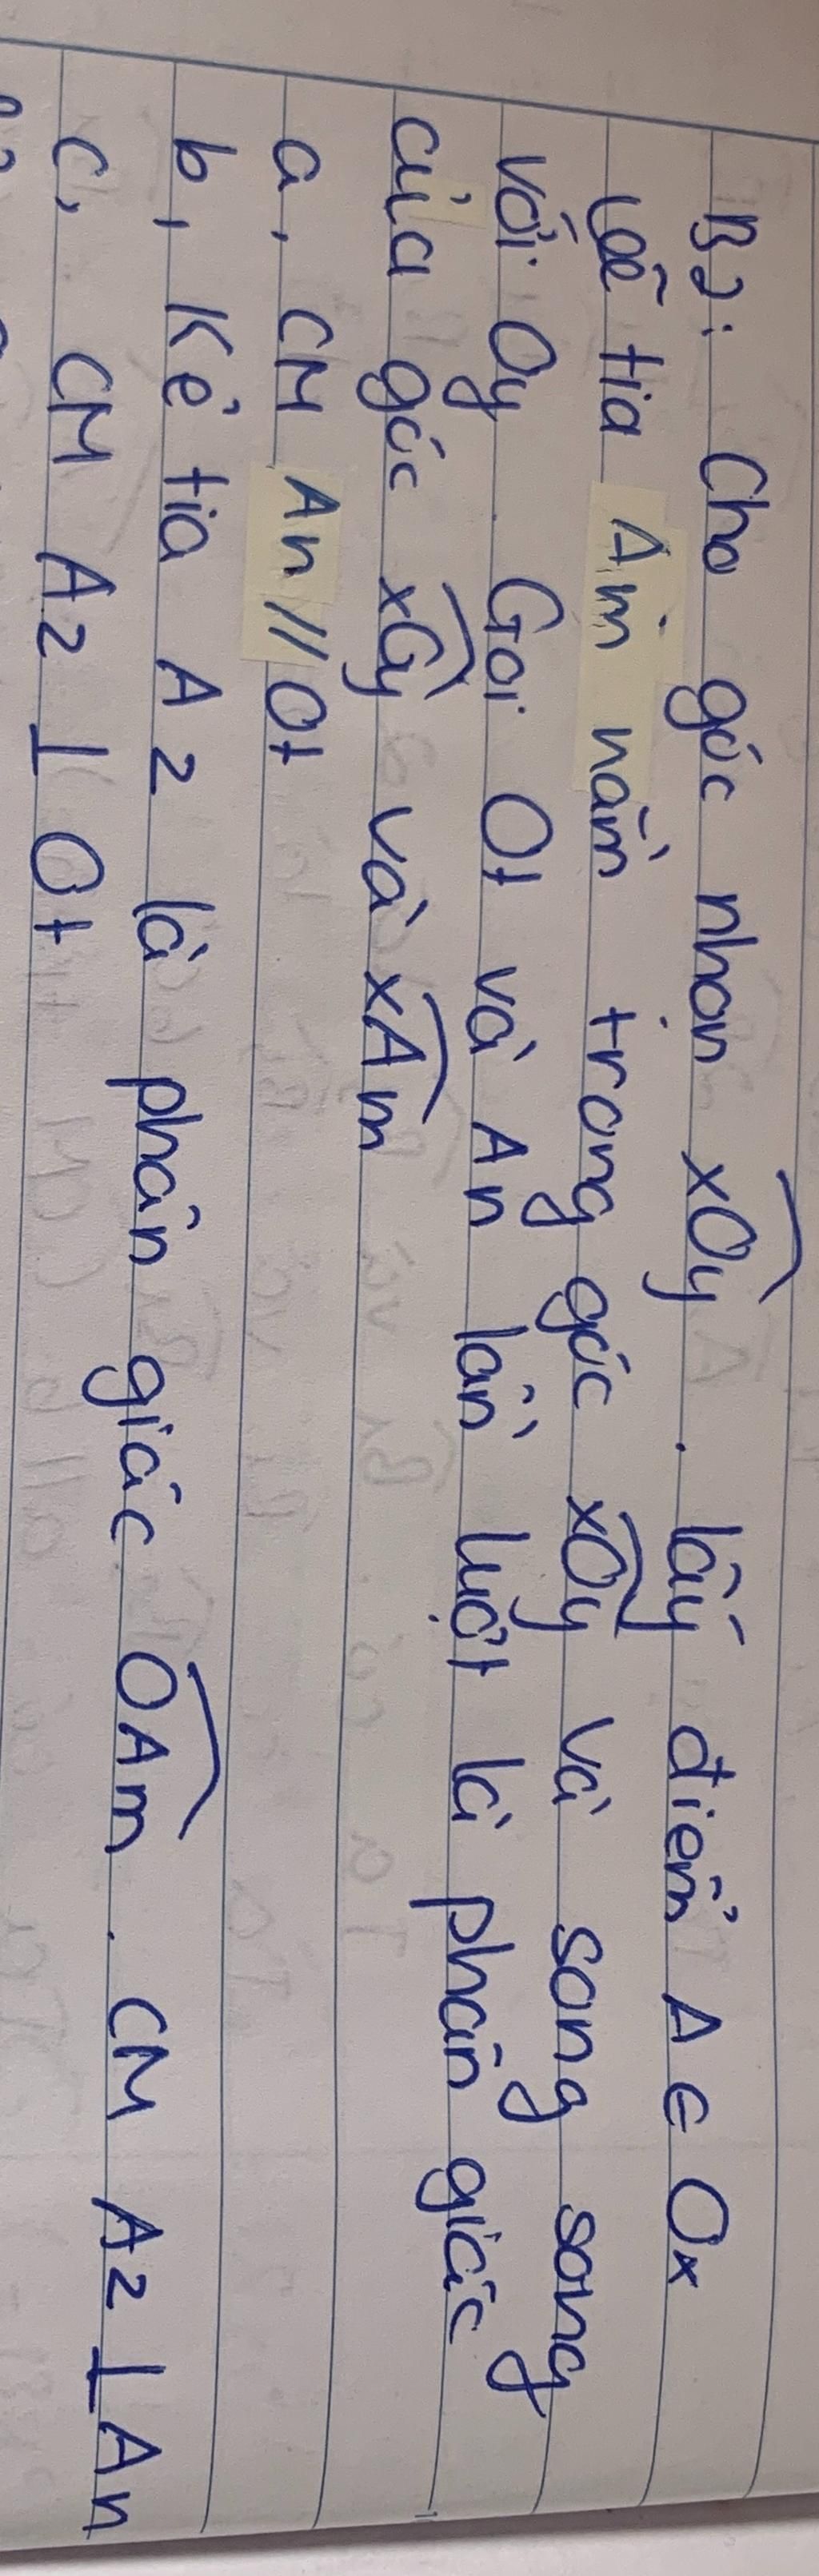 B2: Cho góc nhọn xOy. lấy điểm A ∈ Ox
Vẽ tia Am nằm trong góc xOy và song song
với Oy. Gọi Ot và An lần lượt là phân giác
của góc xOy và xAm
a, CM An // Ot
b, Kẻ tia Az là phân giác OAm. CM Az ⊥ An
c, CM Az ⊥ Ot